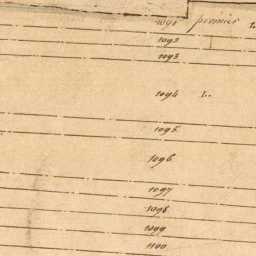 1091 premier 1.
1092
1093
1094 1..
1095
1096
1097
1098
1099
1100